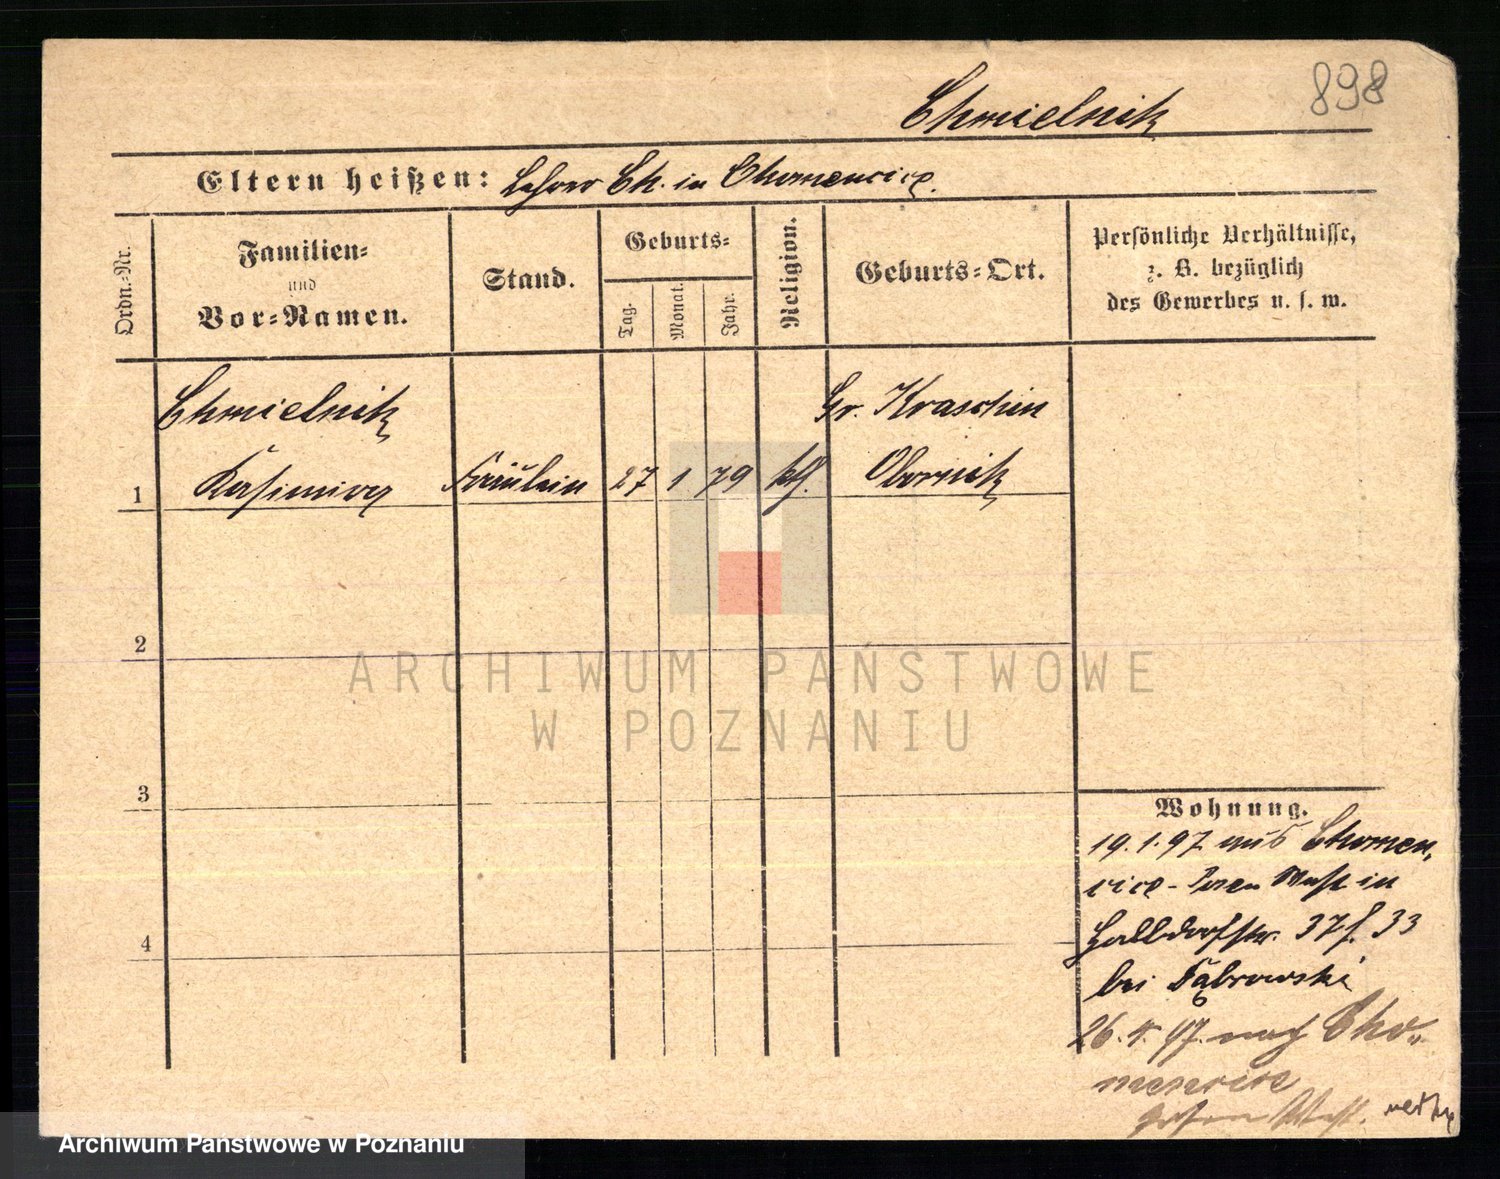 898
Chmielnik
Eltern heißen: Lehrer Ch. in Chomencice.
Ordn.-Nr.
Familien-
und
Vor-Namen.
Stand.
Geburts-
Tag.
Monat.
Jahr.
Religion.
Geburts-Ort.
Persönliche Verhältnisse,
z. B. bezüglich
des Gewerbes u. s. w.
Chmielnik
Gr. Kraschin
1 Kasimira Fräulein 27 1 79 kth. Obornik
2
3
4
Wohnung.
19.1.97 aus Chomen-
cice - Posen West in
Halbdorfstr. 37 f. 33
bei Dąbrowski
26.4.97. nach Cho-
mencice
Posen West.
ARCHIWUM PAŃSTWOWE
W POZNANIU
Archiwum Państwowe w Poznaniu